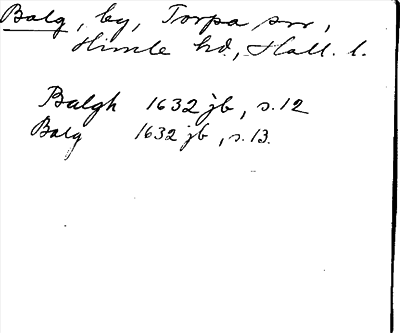 Balg, by, Torpa sn,
Himle hd, Hall. l.
Balgh 1632 jb, s. 12
Balg 1632 jb, s. 13.